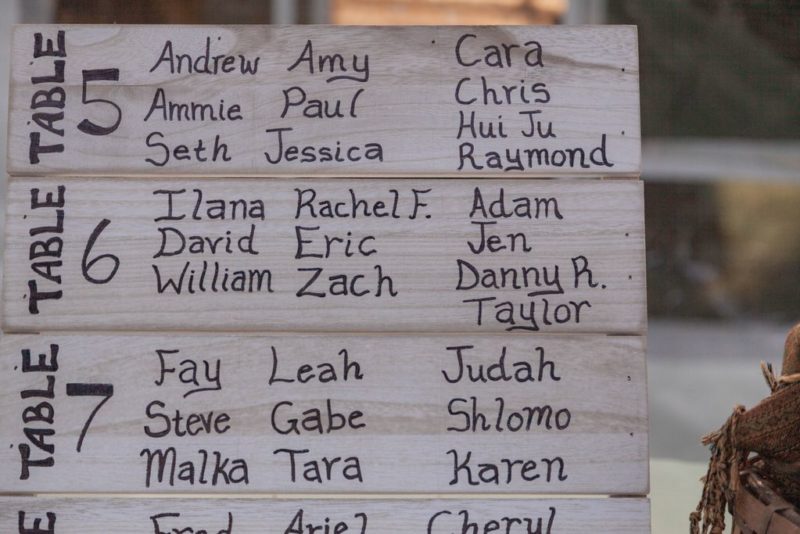 TABLE 5
Andrew Amy Cara
Ammie Paul Chris
Hui Ju
Seth Jessica Raymond
TABLE 6
Ilana Rachel F. Adam
David Eric Jen
William Zach Danny R.
Taylor
TABLE 7
Fay Leah Judah
Steve Gabe Shlomo
Malka Tara Karen
Fred Ariel Cheryl